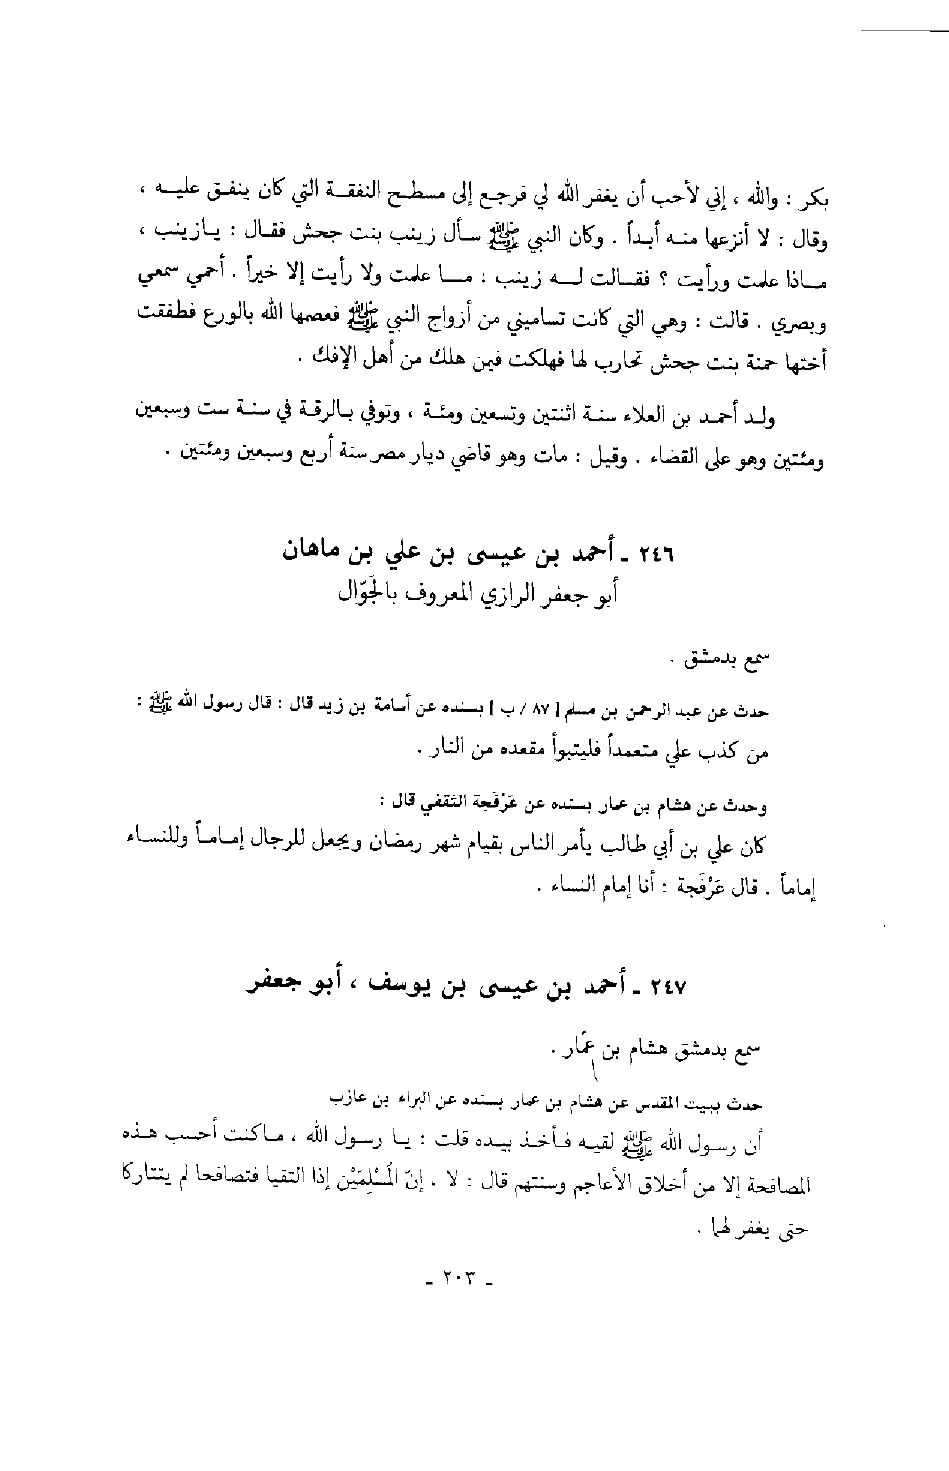 بكر : والله ، إني لأحب أن يغفر الله لي فرجع إلى مسطح النفقة التي كان ينفق عليه ،
وقال : لا أنزعها منه أبداً . وكان النبي ﷺ سأل زينب بنت جحش فقال : يازينب ،
ماذا علمت ورأيت ؟ فقالت له زينب : ما علمت ولا رأيت إلا خيراً . أحمي سمعي
وبصري . قالت : وهي التي كانت تساميني من أزواج النبي ﷺ فعصمها الله بالورع فطفقت
أختها حمنة بنت جحش تحارب لها فهلكت فيمن هلك من أهل الإفك .
ولد أحمد بن العلاء سنة اثنتين وتسعين ومئة ، وتوفي بالرقة في سنة ست وسبعين
ومئتين وهو على القضاء . وقيل : مات وهو قاضي ديار مصر سنة أربع وسبعين ومئتين .
٢٤٦ ـ أحمد بن عيسى بن علي بن ماهان
أبو جعفر الرازي المعروف بالجَوّال
سمع بدمشق .
حدث عن عبد الرحمن بن مسلم [ ٨٧ / ب ] بسنده عن أسامة بن زيد قال : قال رسول الله ﷺ :
من كذب علي متعمداً فليتبوأ مقعده من النار .
وحدث عن هشام بن عمار بسنده عن عَرْفَجة الثقفي قال :
كان علي بن أبي طالب يأمر الناس بقيام شهر رمضان ويجعل للرجال إماماً وللنساء
إماماً . قال عَرْفَجة : أنا إمام النساء .
٢٤٧ ـ أحمد بن عيسى بن يوسف ، أبو جعفر
سمع بدمشق هشام بن عمّار .
حدث ببيت المقدس عن هشام بن عمار بسنده عن البراء بن عازب
أن رسول الله ﷺ لقيه فأخذ بيده قلت : يا رسول الله ، ماكنت أحسب هذه
المصافحة إلا من أخلاق الأعاجم وسنتهم قال : لا . إنّ المُسْلِمَيْن إذا التقيا فتصافحا لم يتتاركا
حتى يغفر لهما .
ـ ٢٠٣ ـ